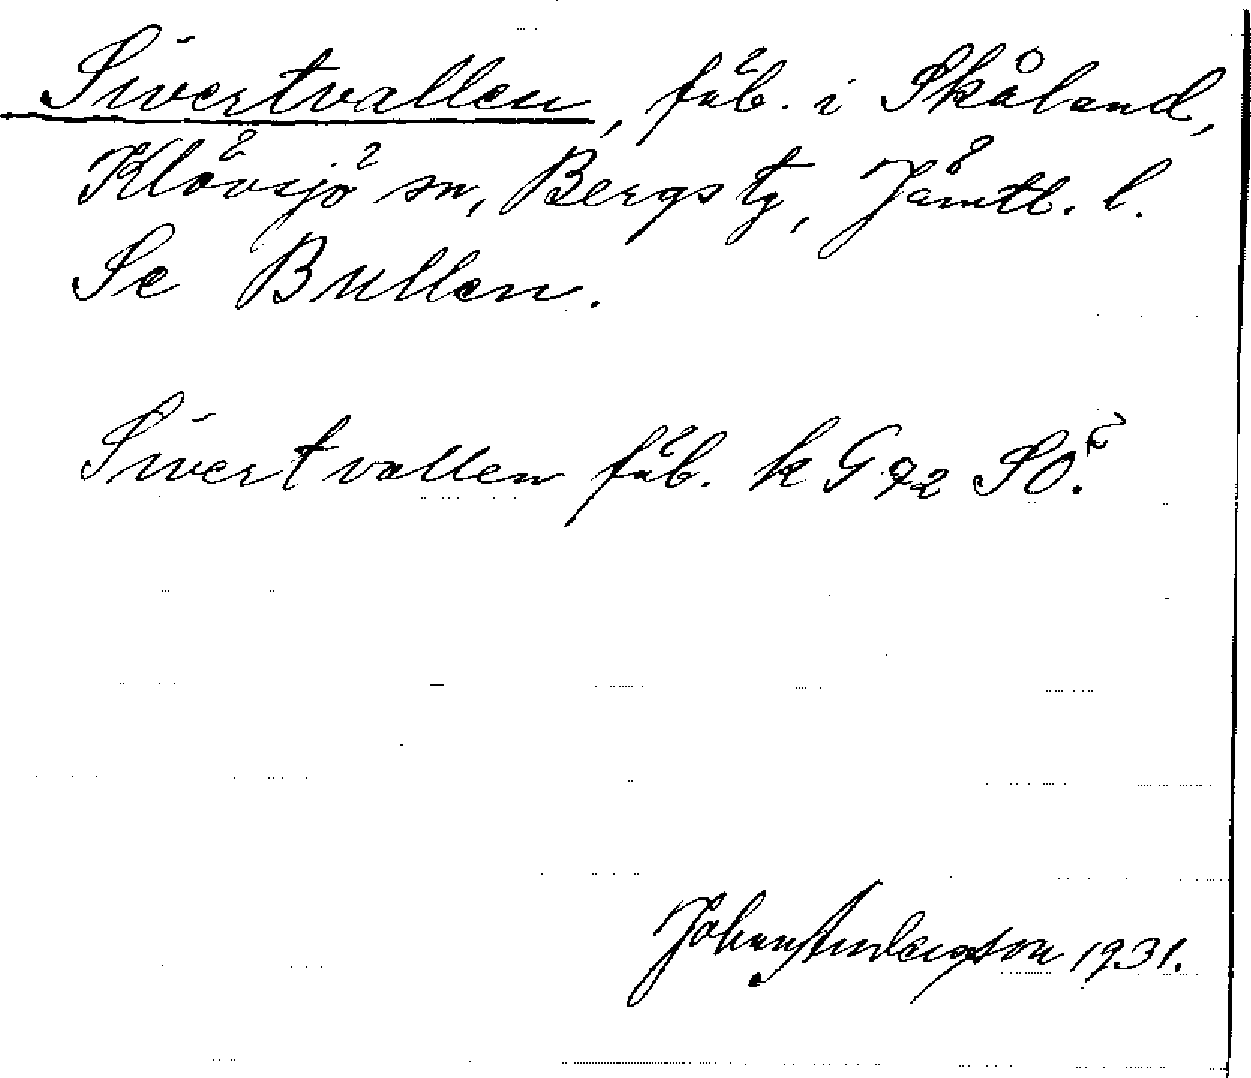 Sivertvallen, fäb. i Skåland,
Klövsjö sn, Bergs tg, Jämtl. l.
Se Bullen.
Sivertvallen fäb. k G 92 SO.
Johan Anderson 1931.